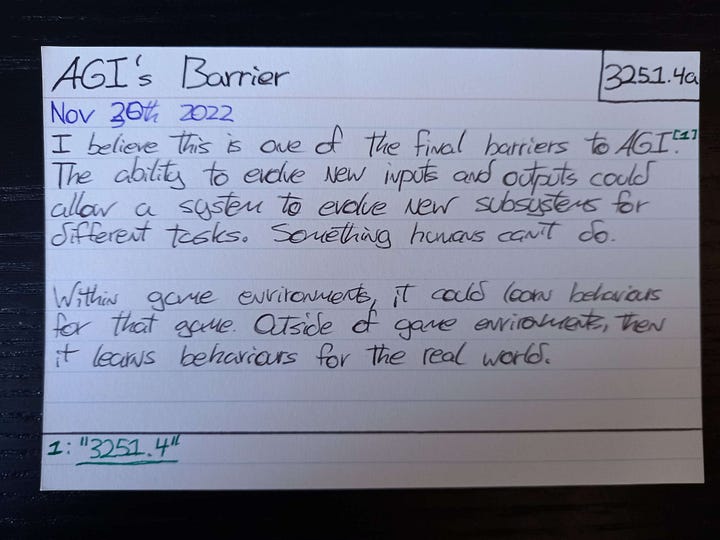 AGI's Barrier
3251.4a
Nov 30th 2022
I believe this is one of the final barriers to AGI.[1]
The ability to evolve new inputs and outputs could
allow a system to evolve new subsystems for
different tasks. Something humans can't do.
Within game environments, it could learn behaviours
for that game. Outside of game environments, then
it learns behaviours for the real world.
1: "3251.4"